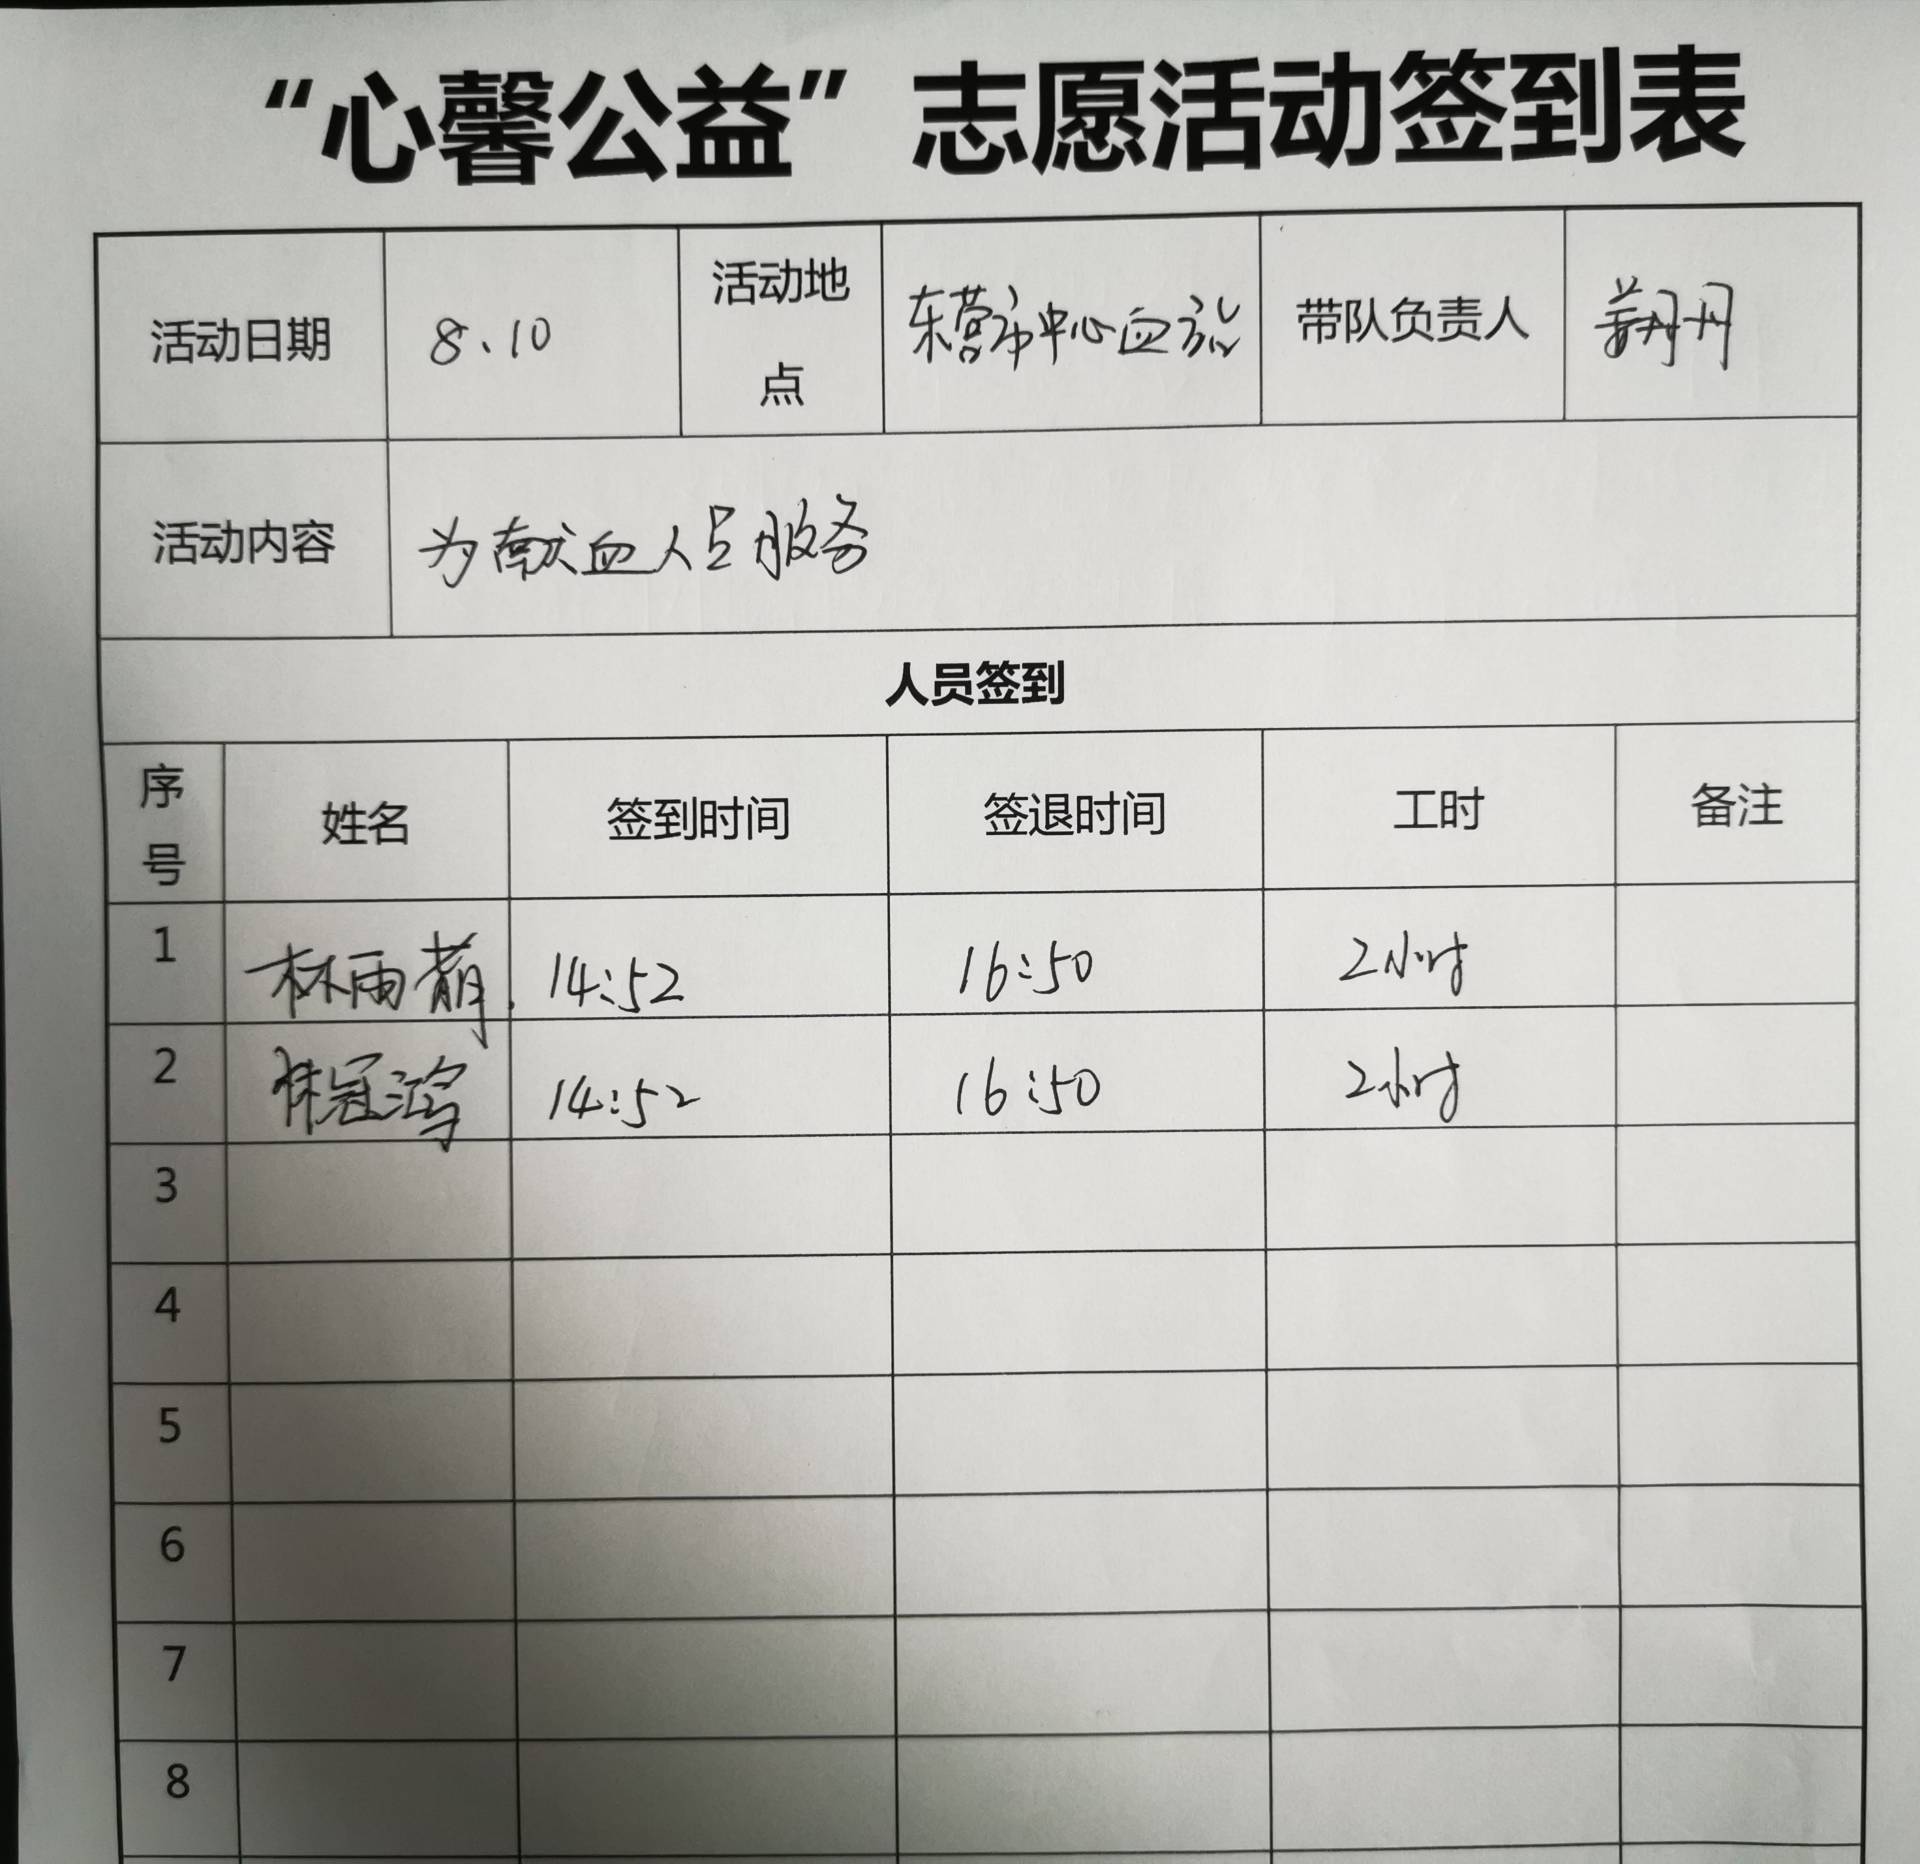 “心馨公益”志愿活动签到表
活动日期 8.10 活动地点 东营市中心血站 带队负责人 丹丹
活动内容 为献血人员服务
人员签到
序号 姓名 签到时间 签退时间 工时 备注
1 林雨菁 14:52 16:50 2小时
2 冠鸿 14:52 16:50 2小时
3
4
5
6
7
8